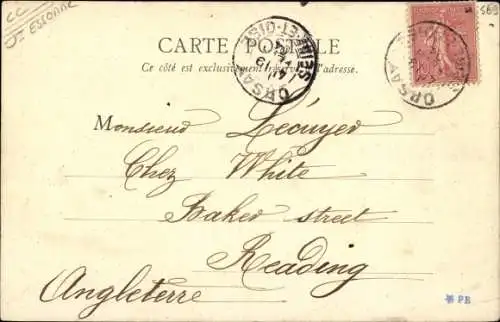 CC
Essonne
569
CARTE POSTALE
Ce côté est exclusivement réservé à l'adresse.
ORSAY
SEINE-ET-OISE
ORSAY
Monsieur Lécuyer
Chez White
Baker street
Reading
Angleterre
PB